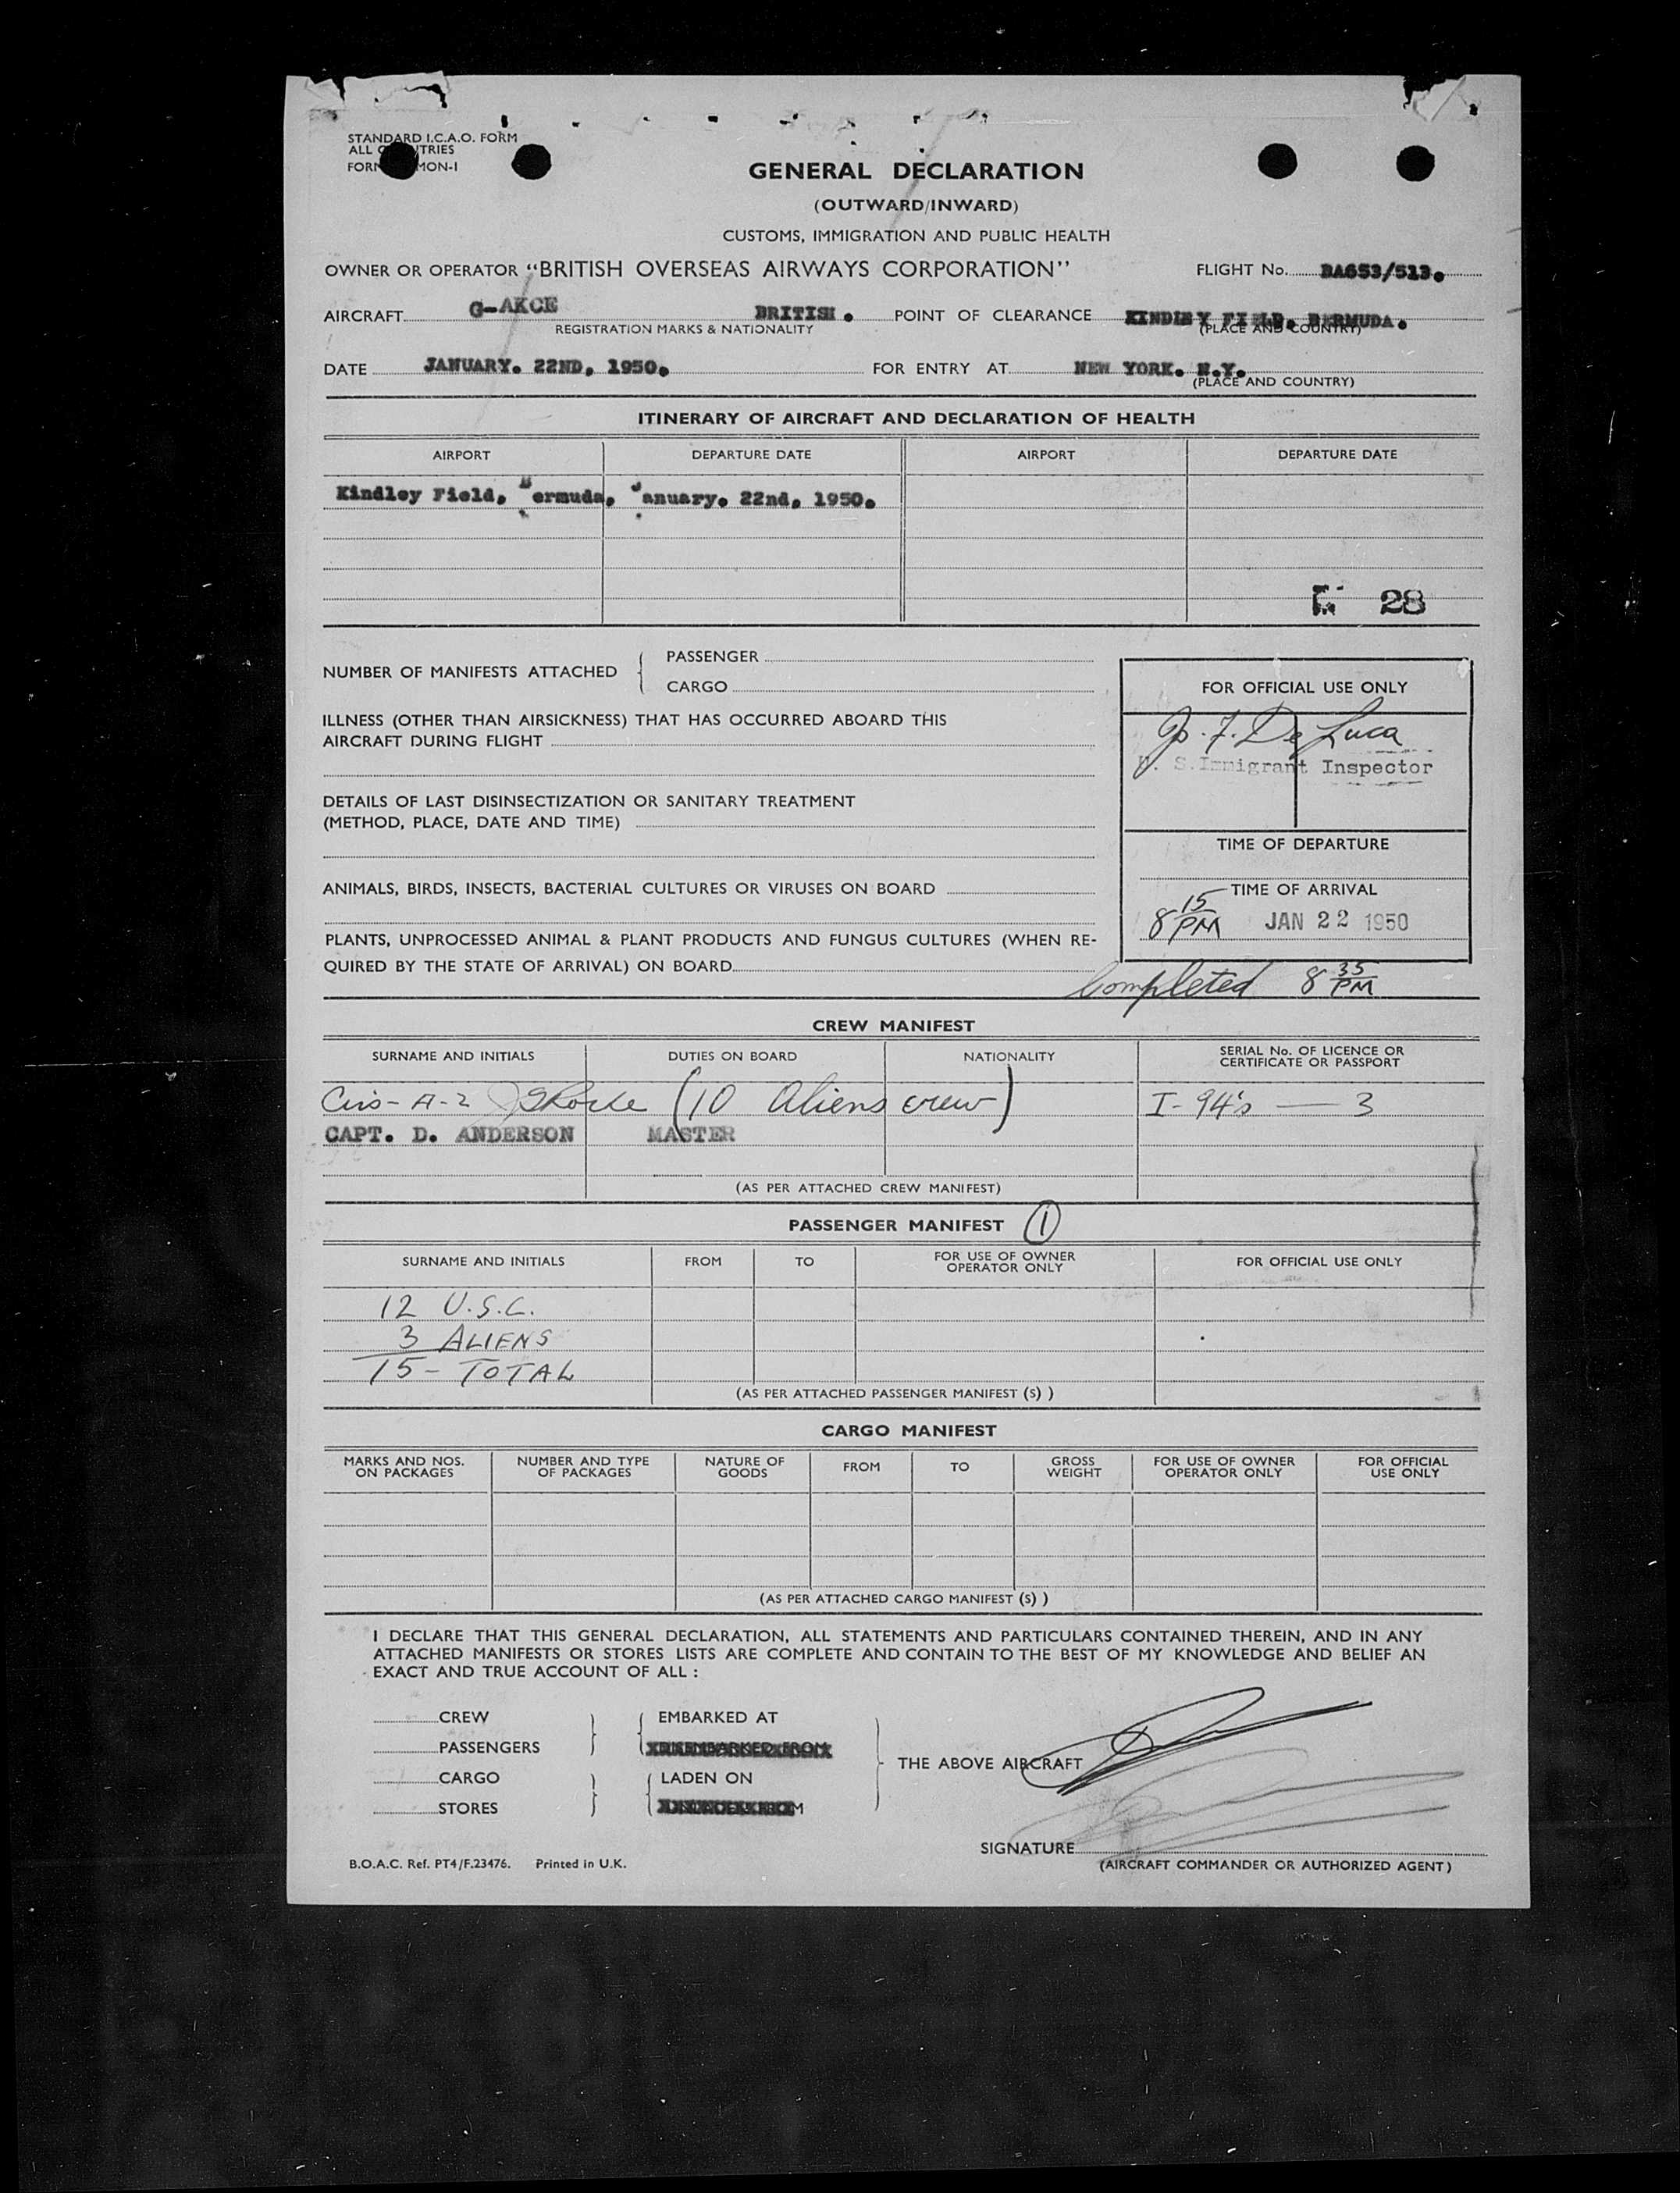 STANDARD I.C.A.O. FORM
ALL COUNTRIES
MON-1
GENERAL DECLARATION
(OUTWARD/INWARD)
CUSTOMS, IMMIGRATION AND PUBLIC HEALTH
OWNER OR OPERATOR "BRITISH OVERSEAS AIRWAYS CORPORATION" FLIGHT No. BA653/513.
AIRCRAFT G-AKCE BRITISH. POINT OF CLEARANCE KINDLEY FIELD, BERMUDA.
REGISTRATION MARKS & NATIONALITY (PLACE AND COUNTRY)
DATE JANUARY. 22ND, 1950. FOR ENTRY AT NEW YORK. N.Y.
(PLACE AND COUNTRY)
ITINERARY OF AIRCRAFT AND DECLARATION OF HEALTH
AIRPORT DEPARTURE DATE AIRPORT DEPARTURE DATE
Kindley Field, Bermuda, January. 22nd, 1950.
28
NUMBER OF MANIFESTS ATTACHED { PASSENGER
CARGO
FOR OFFICIAL USE ONLY
ILLNESS (OTHER THAN AIRSICKNESS) THAT HAS OCCURRED ABOARD THIS
AIRCRAFT DURING FLIGHT
J. F. De Luca
U. S. Immigrant Inspector
DETAILS OF LAST DISINSECTIZATION OR SANITARY TREATMENT
(METHOD, PLACE, DATE AND TIME)
TIME OF DEPARTURE
ANIMALS, BIRDS, INSECTS, BACTERIAL CULTURES OR VIRUSES ON BOARD
TIME OF ARRIVAL
8 15 PM JAN 22 1950
PLANTS, UNPROCESSED ANIMAL & PLANT PRODUCTS AND FUNGUS CULTURES (WHEN RE-
QUIRED BY THE STATE OF ARRIVAL) ON BOARD
Completed 8 35 PM
CREW MANIFEST
SURNAME AND INITIALS DUTIES ON BOARD NATIONALITY SERIAL No. OF LICENCE OR
CERTIFICATE OR PASSPORT
A-2 (10 Aliens crew) I-94's — 3
CAPT. D. ANDERSON MASTER
(AS PER ATTACHED CREW MANIFEST)
PASSENGER MANIFEST 1
SURNAME AND INITIALS FROM TO FOR USE OF OWNER
OPERATOR ONLY FOR OFFICIAL USE ONLY
12 U.S.C.
3 ALIENS
15 - TOTAL
(AS PER ATTACHED PASSENGER MANIFEST (S) )
CARGO MANIFEST
MARKS AND NOS.
ON PACKAGES NUMBER AND TYPE
OF PACKAGES NATURE OF
GOODS FROM TO GROSS
WEIGHT FOR USE OF OWNER
OPERATOR ONLY FOR OFFICIAL
USE ONLY
(AS PER ATTACHED CARGO MANIFEST (S) )
I DECLARE THAT THIS GENERAL DECLARATION, ALL STATEMENTS AND PARTICULARS CONTAINED THEREIN, AND IN ANY
ATTACHED MANIFESTS OR STORES LISTS ARE COMPLETE AND CONTAIN TO THE BEST OF MY KNOWLEDGE AND BELIEF AN
EXACT AND TRUE ACCOUNT OF ALL :
CREW EMBARKED AT
PASSENGERS
THE ABOVE AIRCRAFT
CARGO LADEN ON
STORES
SIGNATURE
B.O.A.C. Ref. PT4/F.23476. Printed in U.K. (AIRCRAFT COMMANDER OR AUTHORIZED AGENT)